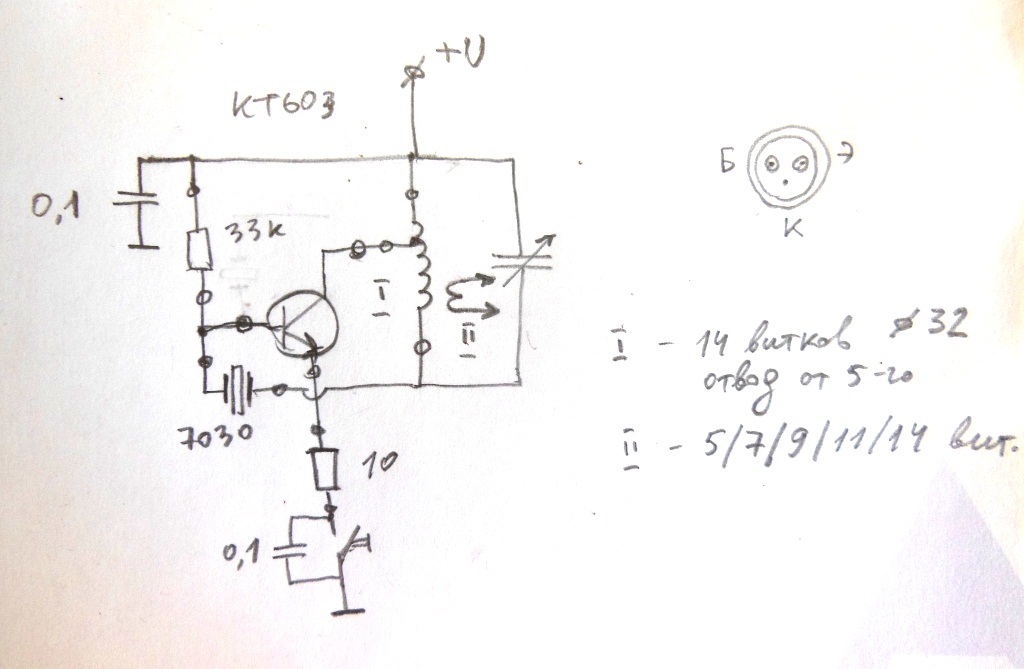 +U
КТ603
0,1
33к
I
II
7030
10
0,1
Б
Э
К
I - 14 витков ⌀32
отвод от 5-го
II - 5/7/9/11/14 вит.